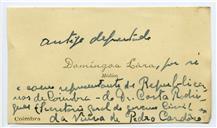 antigo deputado
Domingos Lara, por si
Médico
e como representante de Republica
nos de Coimbra - do Dr. Costa Rodri
gues (Secretario geral do governo Civil) e
da Viuva de Pedro Cardoso
Coimbra